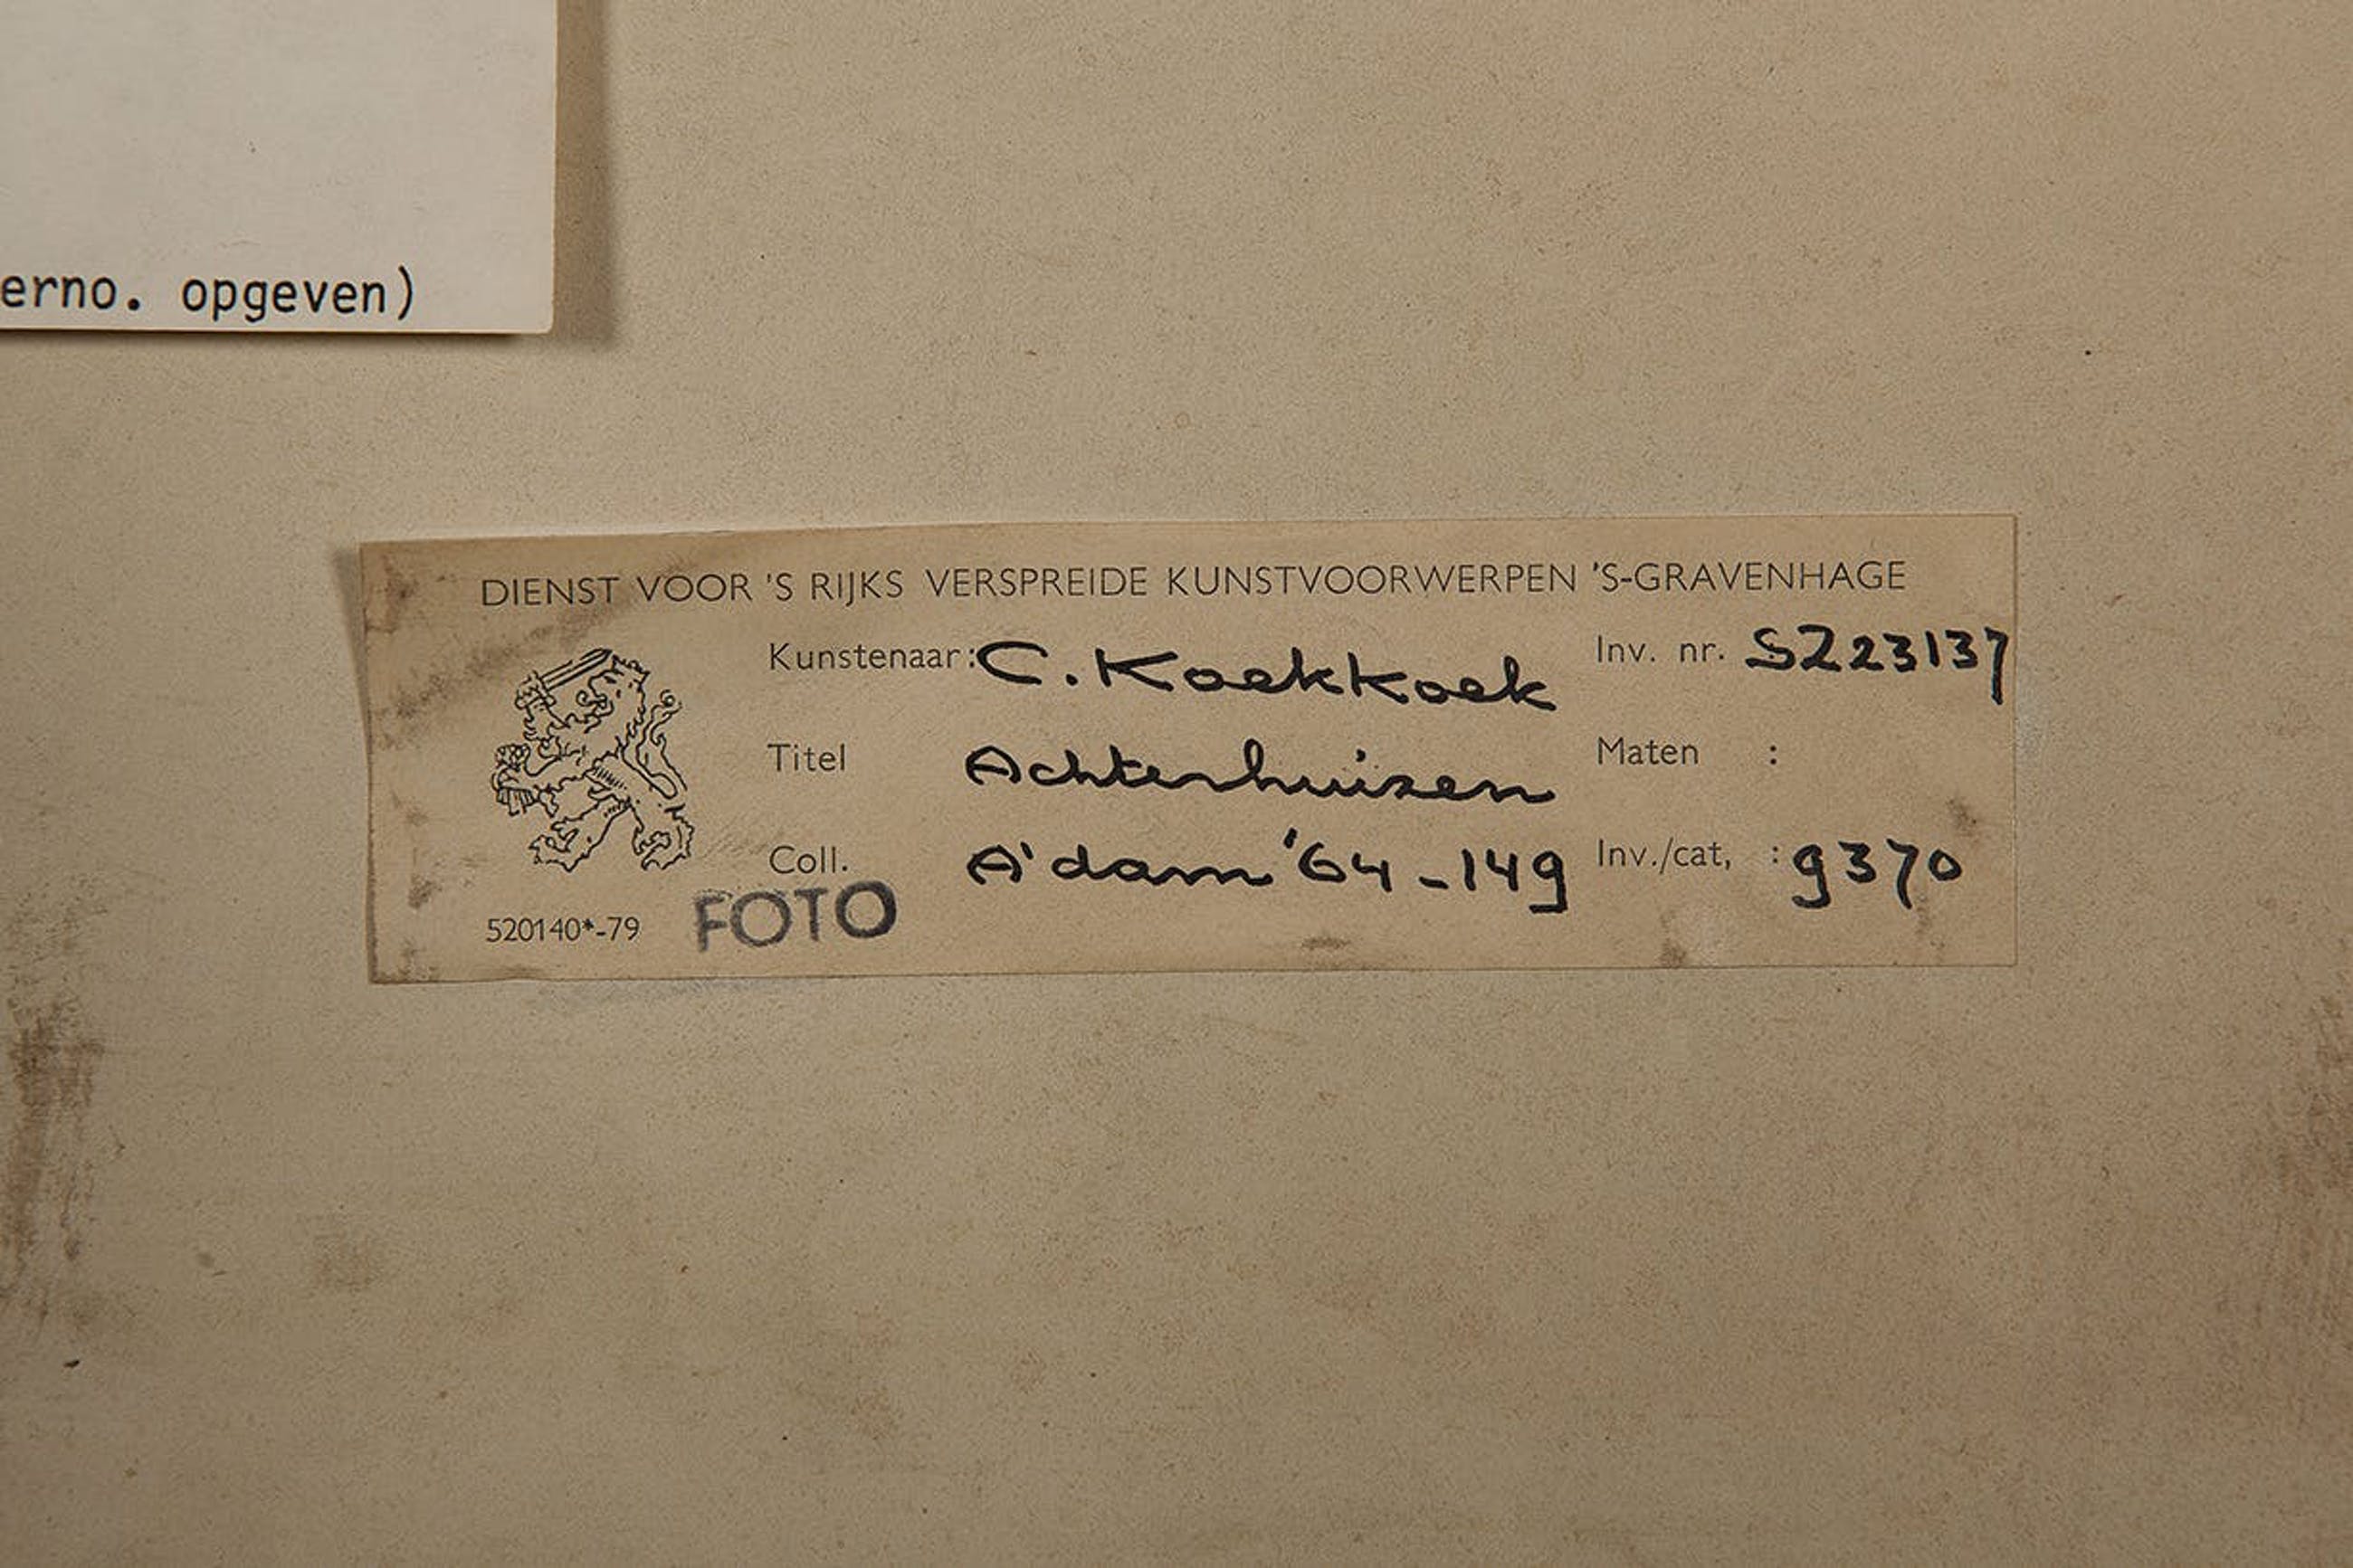 erno. opgeven)
DIENST VOOR 'S RIJKS VERSPREIDE KUNSTVOORWERPEN 'S-GRAVENHAGE
Kunstenaar: C. Koekkoek Inv. nr. SZ23137
Titel Achterhuizen Maten :
Coll. A'dam '64-149 Inv./cat, : 9370
520140*-79 FOTO